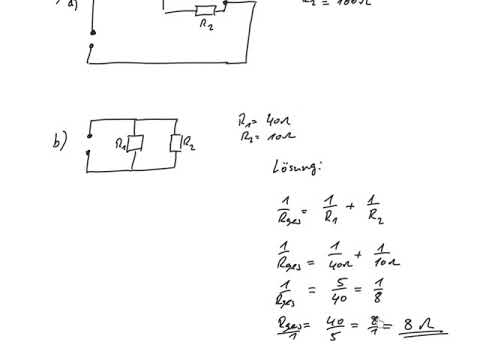 a)
R₂
R₂ = 100Ω
b)
R₁ R₂
R₁ = 40Ω
R₂ = 10Ω
Lösung:
1/Rges = 1/R₁ + 1/R₂
1/Rges = 1/40Ω + 1/10Ω
1/Rges = 5/40 = 1/8
Rges/1 = 40/5 = 8/1 = 8 Ω